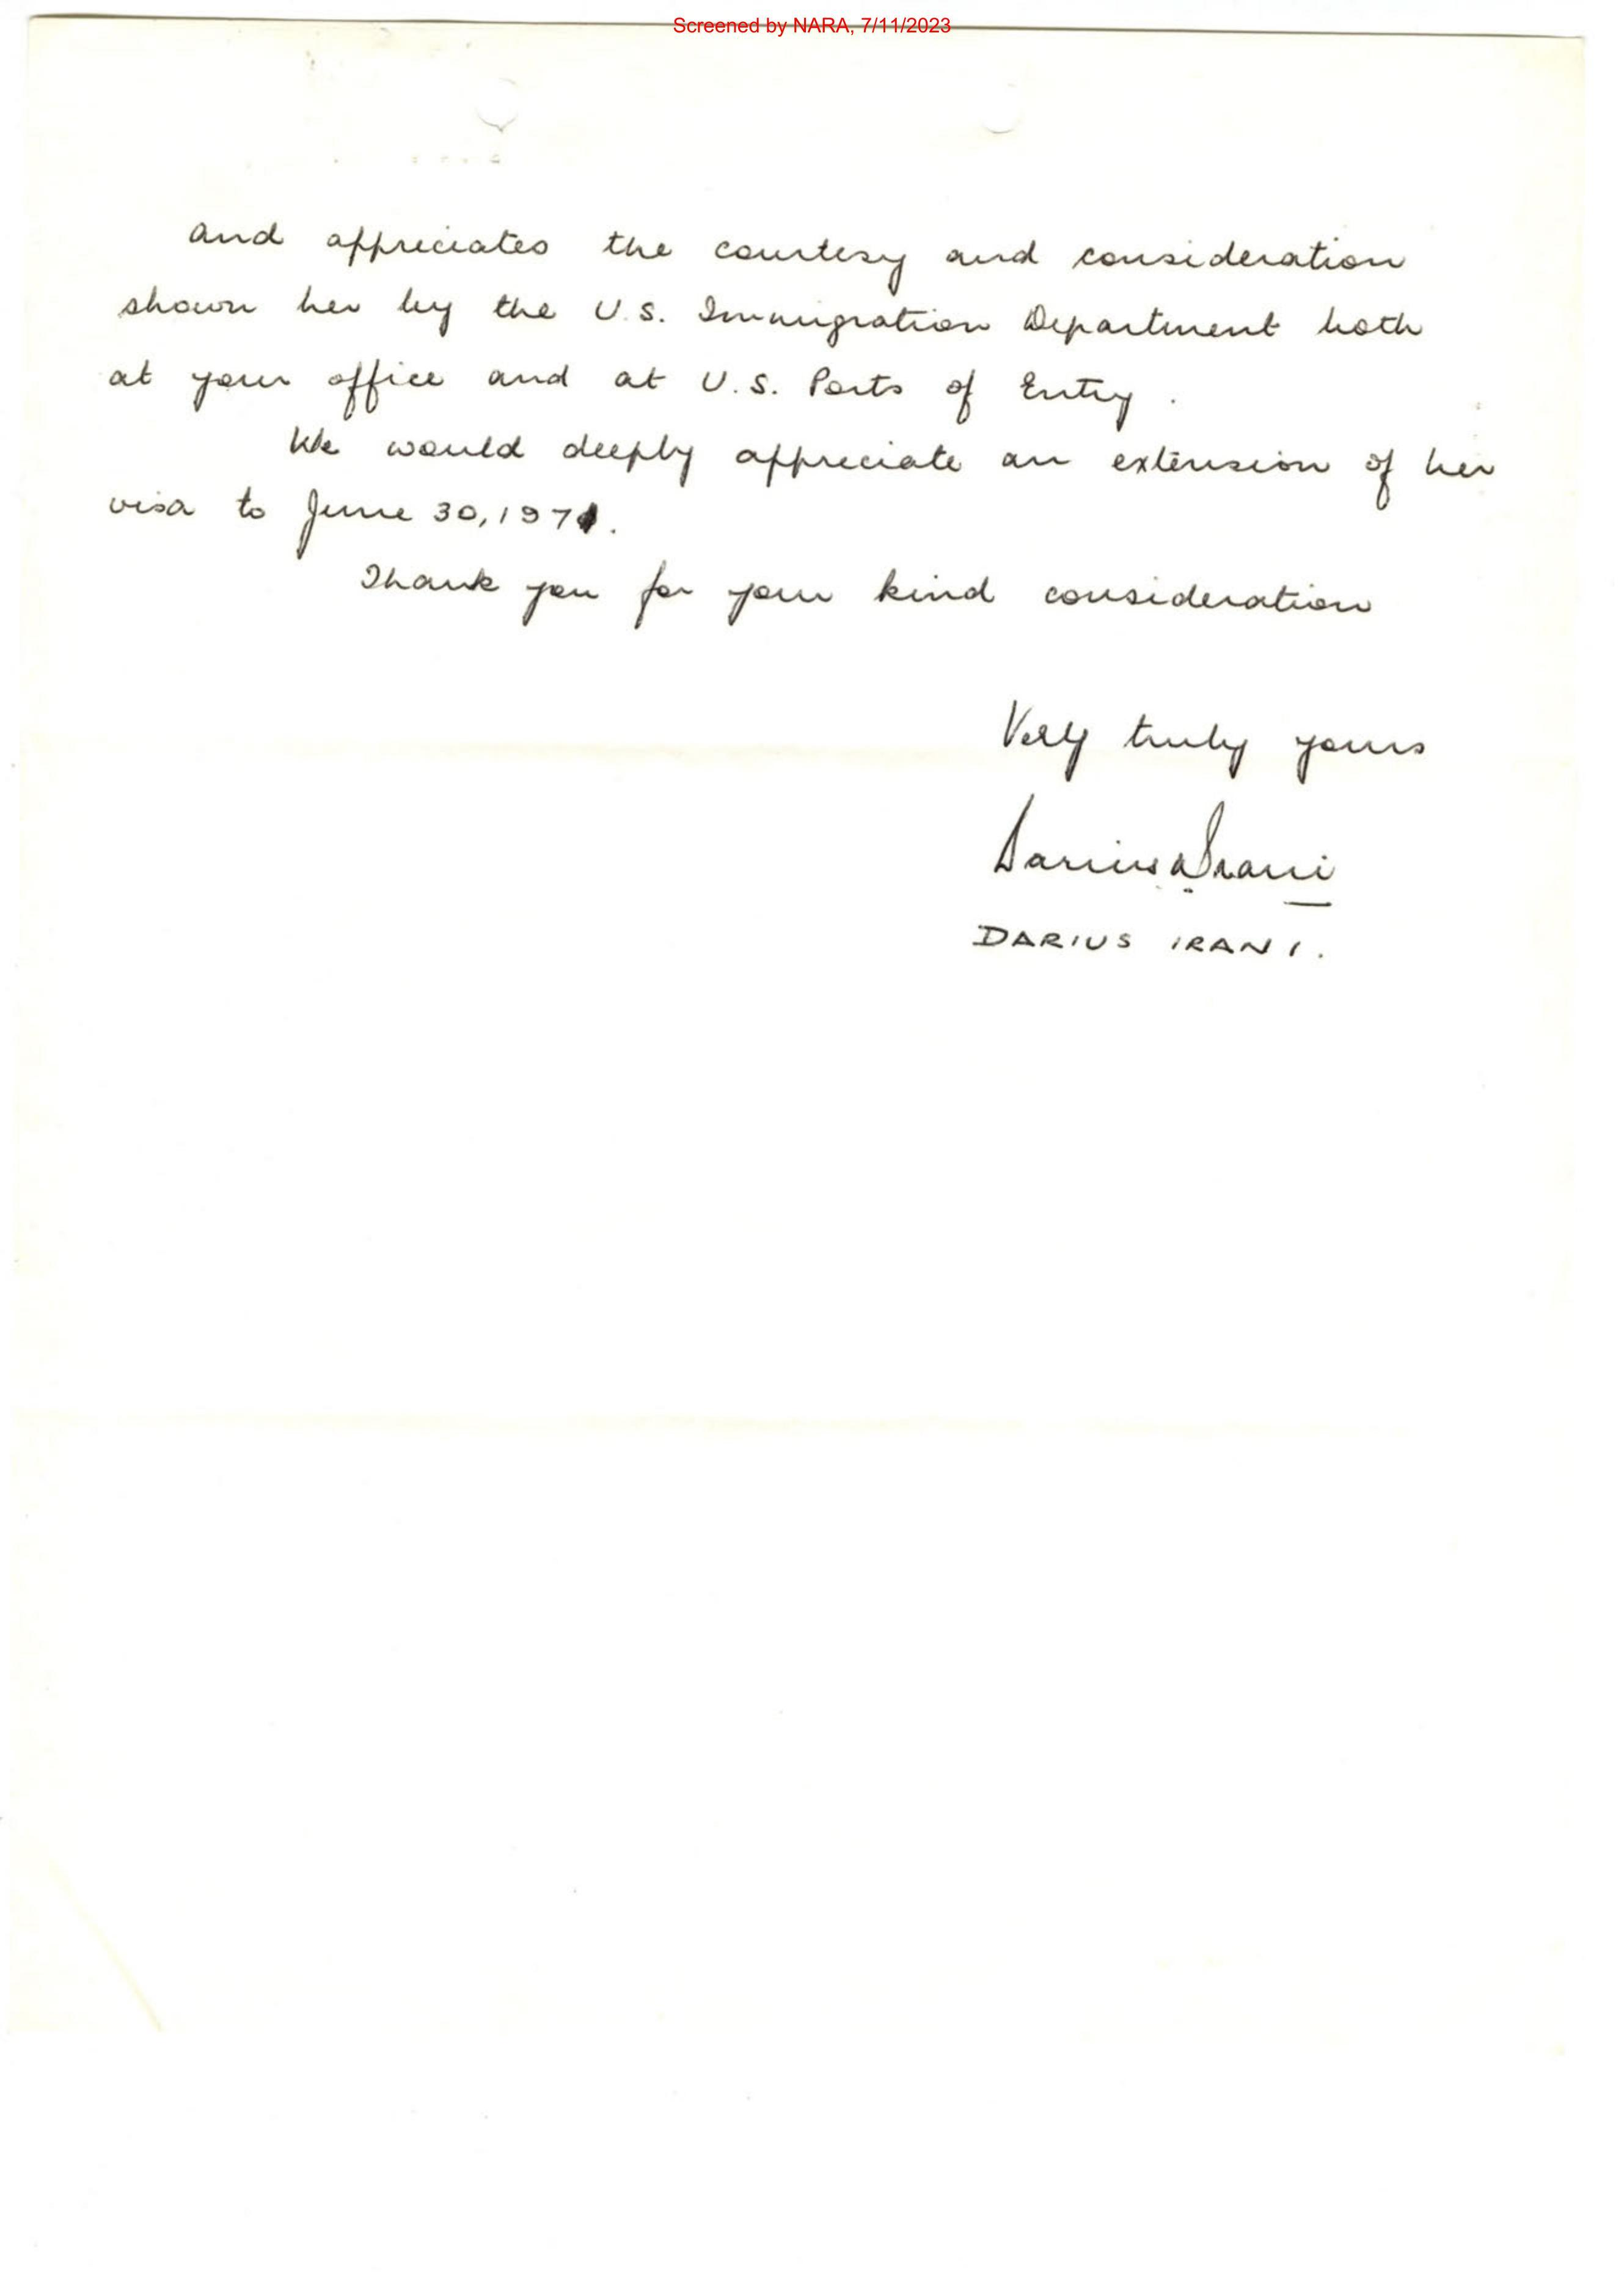 Screened by NARA, 7/11/2023
and appreciates the courtesy and consideration
shown her by the U.S. Immigration Department both
at your office and at U.S. Ports of Entry.
We would deeply appreciate an extension of her
visa to June 30, 1971.
Thank you for your kind consideration
Very truly yours
Darius Irani
DARIUS IRANI.